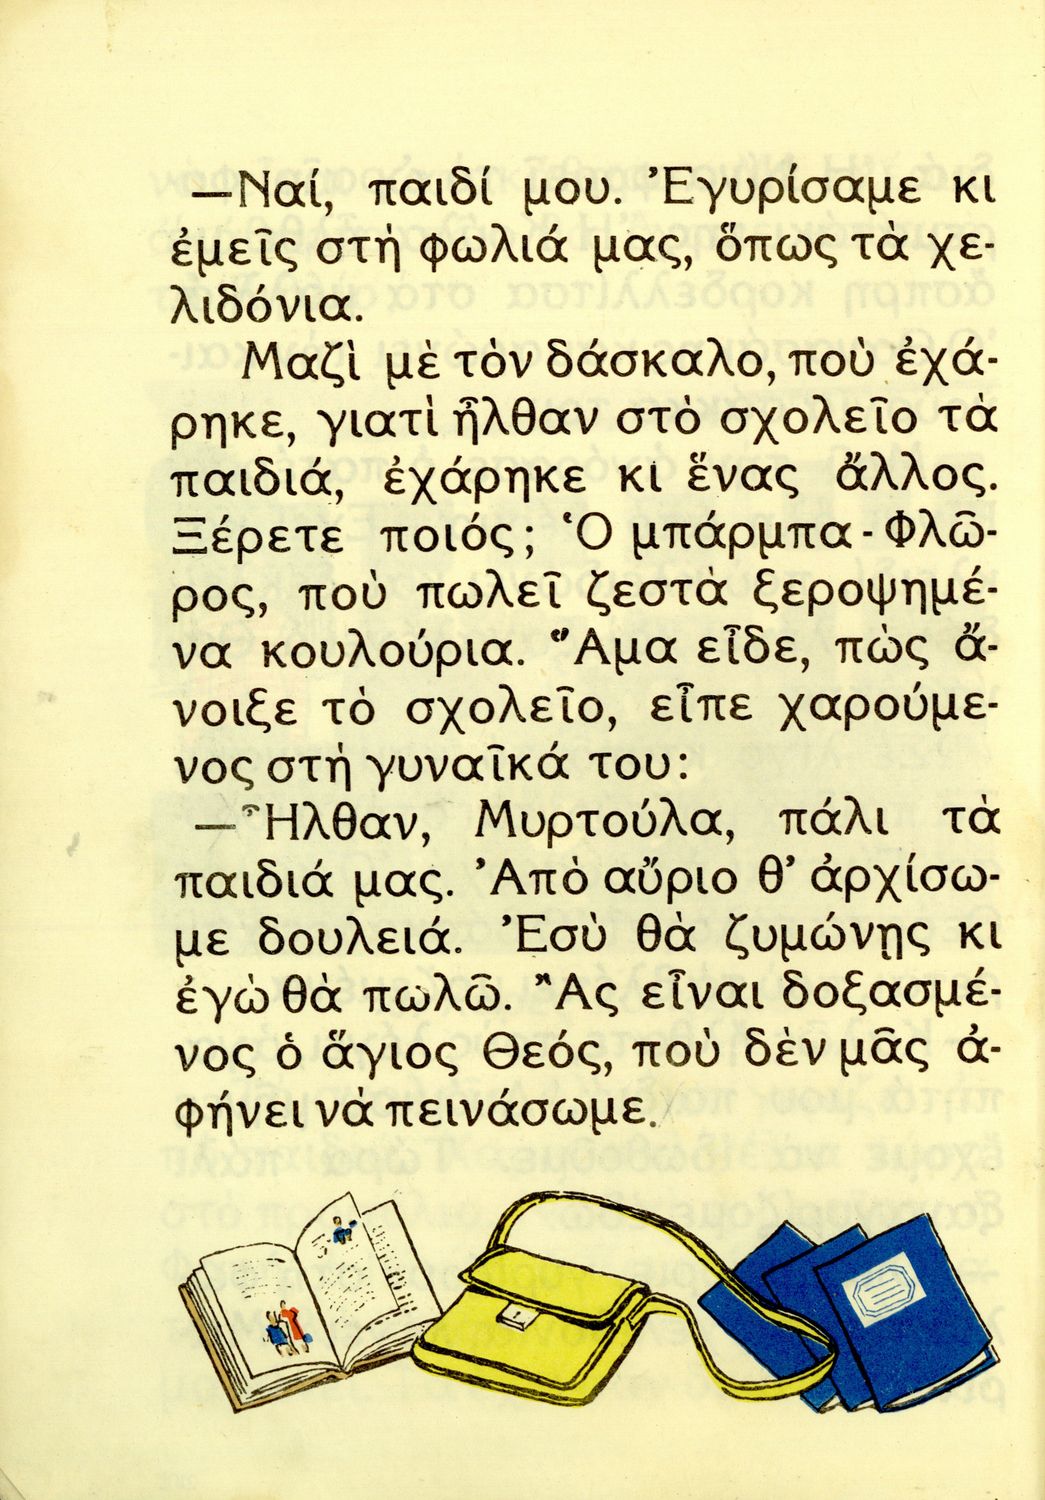 —Ναί, παιδί μου. Ἐγυρίσαμε κι
ἐμεῖς στὴ φωλιά μας, ὅπως τὰ χε-
λιδόνια.
Μαζὶ μὲ τὸν δάσκαλο, ποὺ ἐχά-
ρηκε, γιατὶ ἦλθαν στὸ σχολεῖο τὰ
παιδιά, ἐχάρηκε κι ἕνας ἄλλος.
Ξέρετε ποιός; Ὁ μπάρμπα - Φλῶ-
ρος, ποὺ πωλεῖ ζεστὰ ξεροψημέ-
να κουλούρια. Ἅμα εἶδε, πὼς ἄ-
νοιξε τὸ σχολεῖο, εἶπε χαρούμε-
νος στὴ γυναῖκά του:
—Ἦλθαν, Μυρτούλα, πάλι τὰ
παιδιά μας. Ἀπὸ αὔριο θ’ ἀρχίσω-
με δουλειά. Ἐσὺ θὰ ζυμώνῃς κι
ἐγὼ θὰ πωλῶ. Ἂς εἶναι δοξασμέ-
νος ὁ ἅγιος Θεός, ποὺ δὲν μᾶς ἀ-
φήνει νὰ πεινάσωμε.